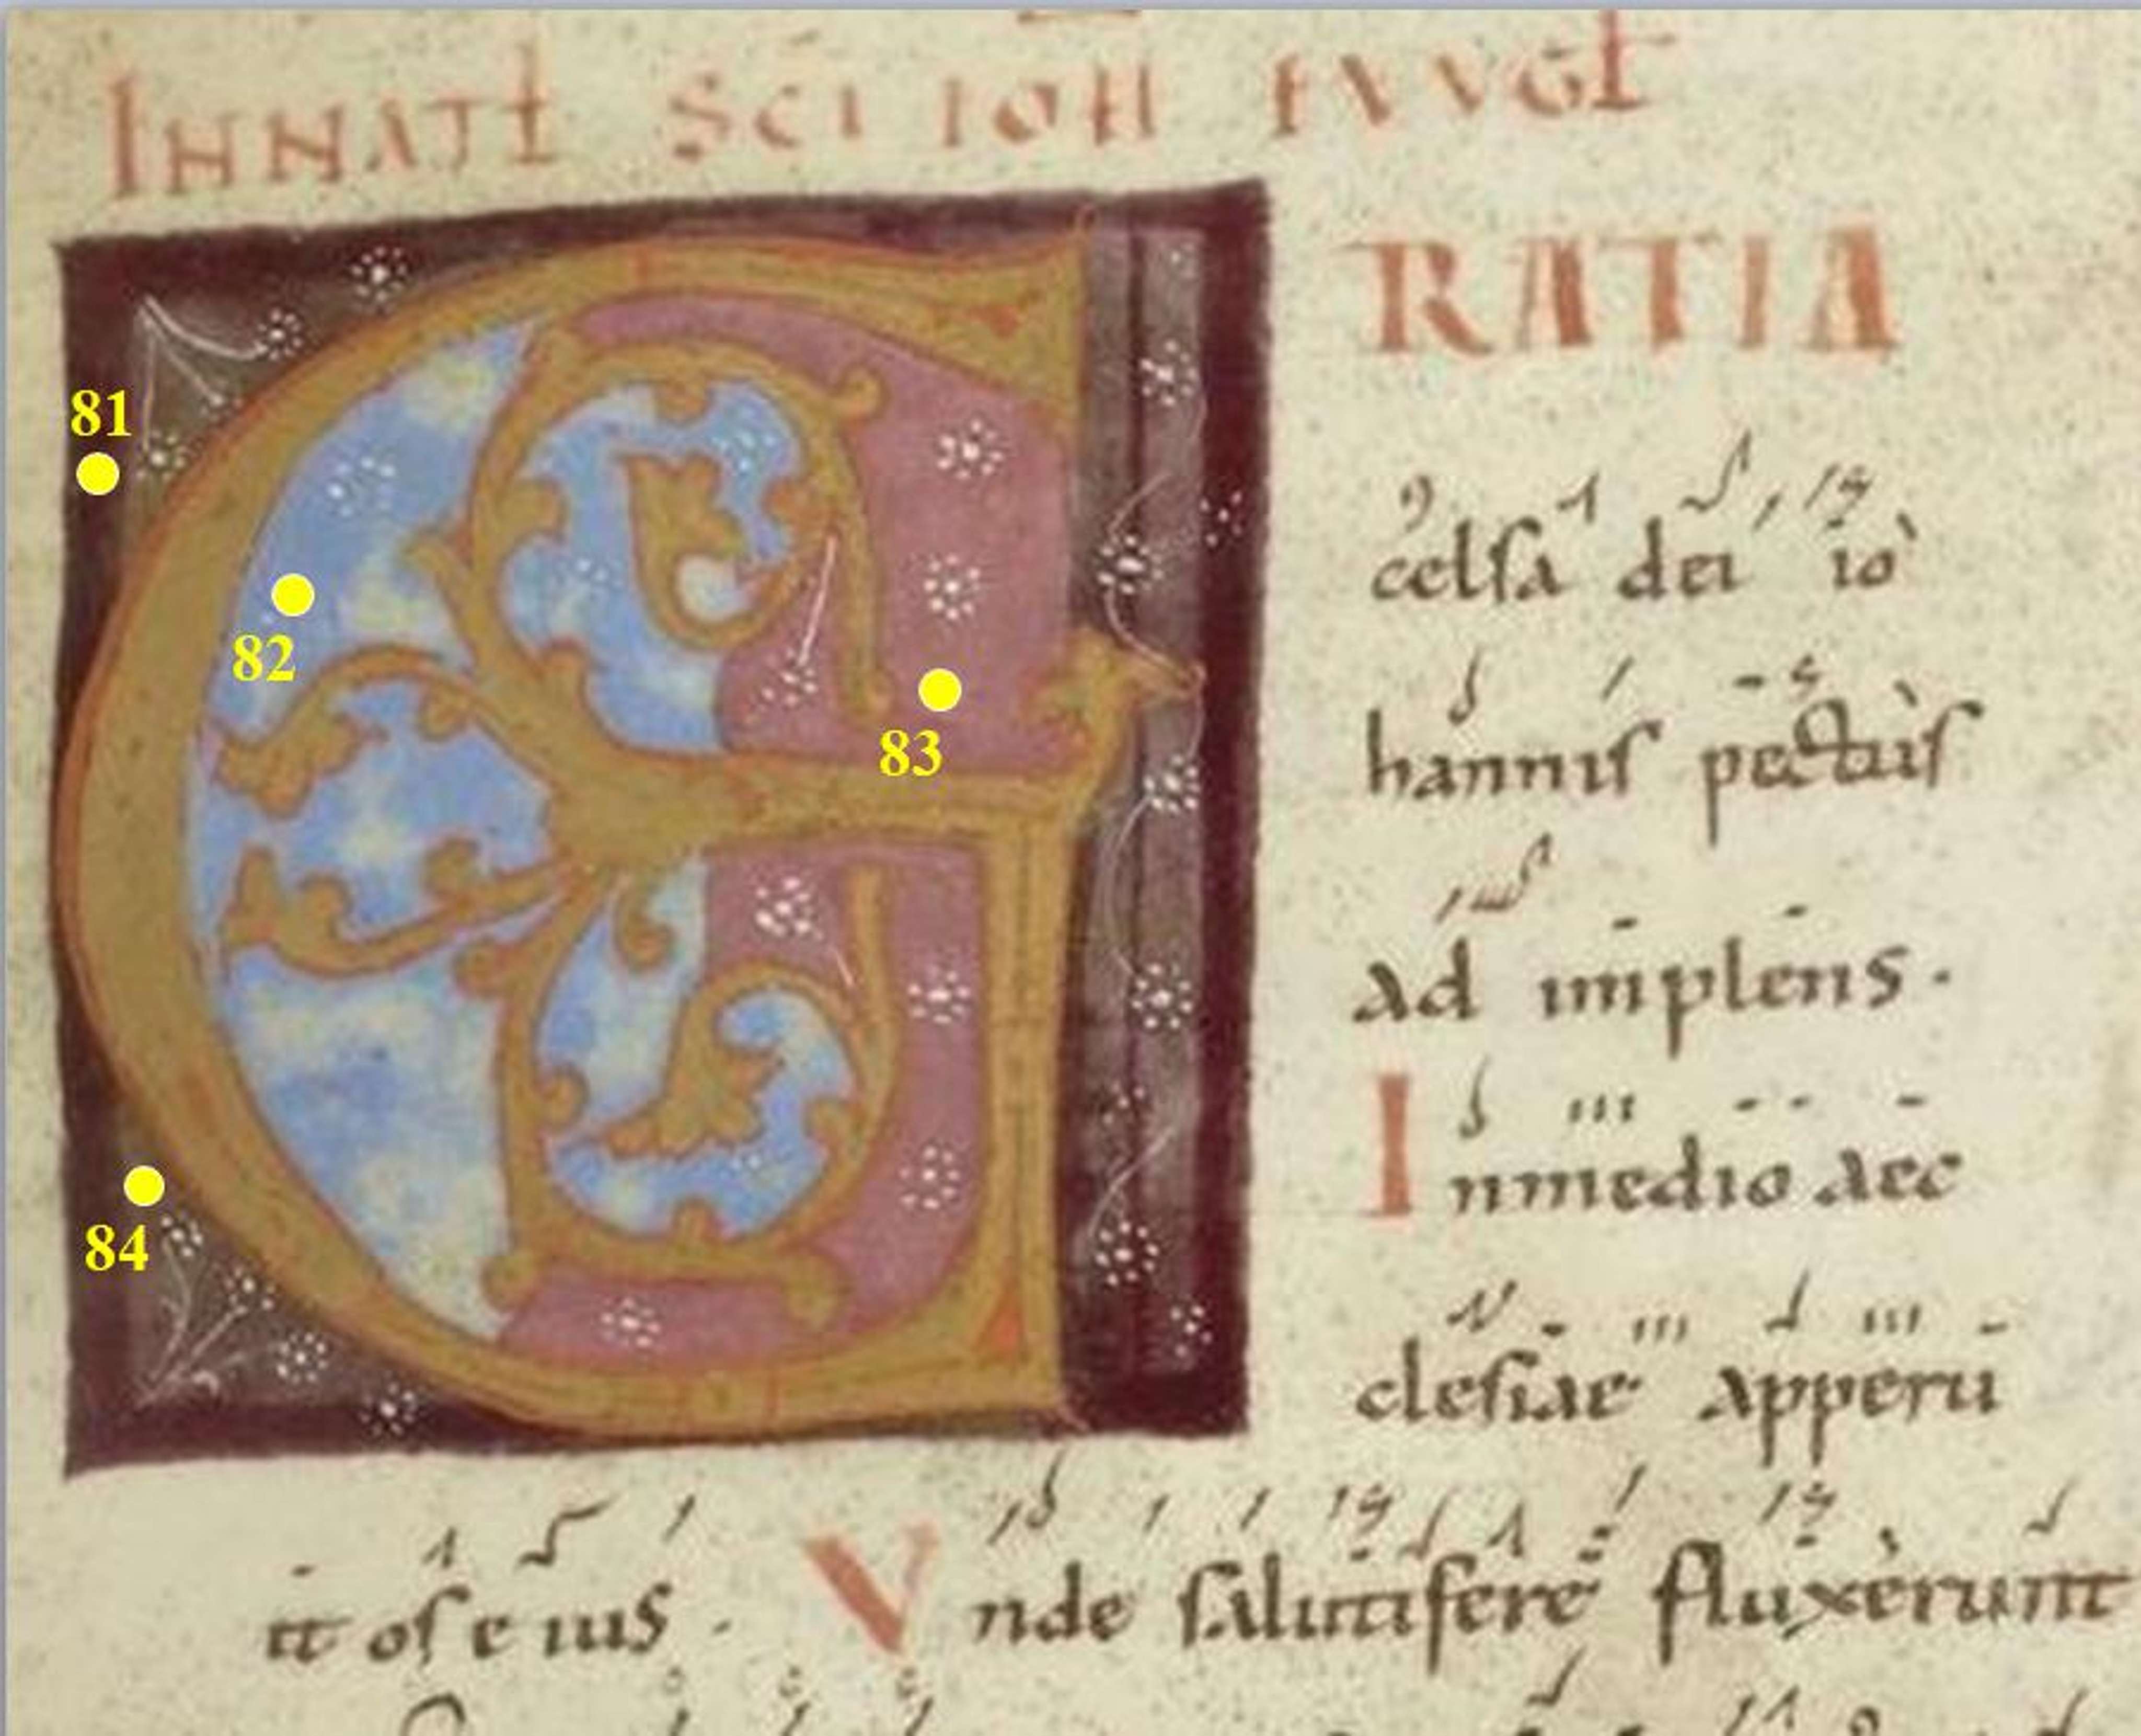 INNATł SCI IOH EVVGŁ
G RATIA
celsa dei io
hannis pectus
ad implens.
I nmedio aec
clesiae apperu
it os eius. Vnde salutifere fluxerunt
81
82
83
84